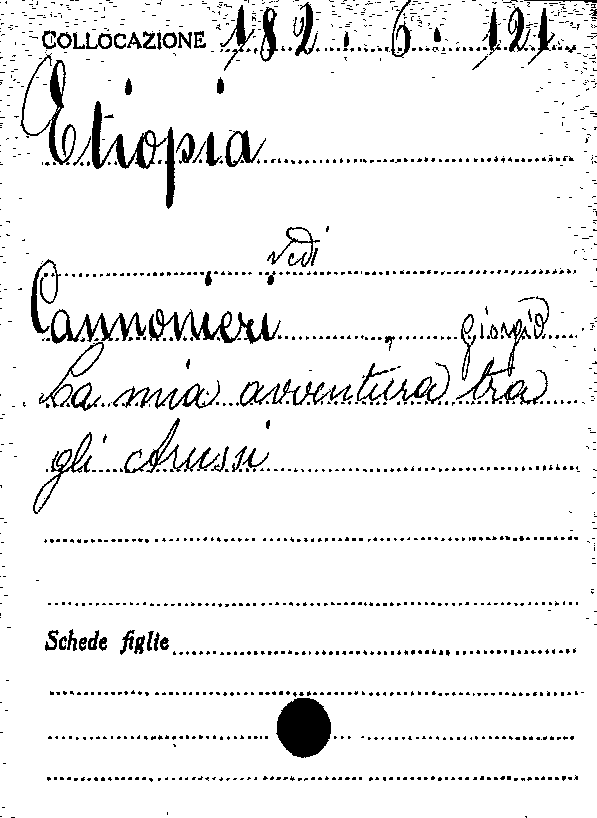 COLLOCAZIONE 182.6.121
Etiopia
vedi
Cannonieri, Giorgio
La mia avventura tra
gli Arussi
Schede figlie